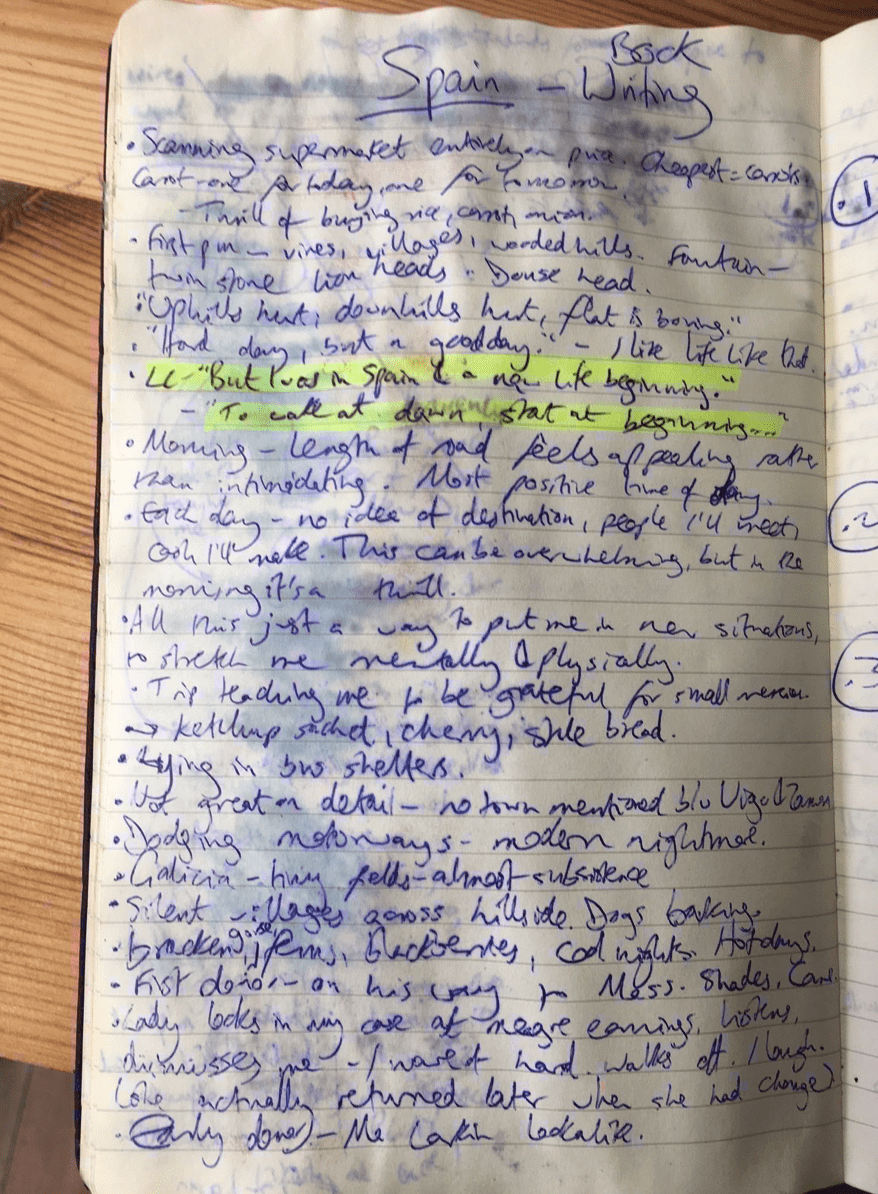 Spain - Book Writing
• Scanning supermarket entirely on price. Cheapest = carrots.
Carrot - one for today, one for tomorrow.
- Thrill of buying rice, carrot, onion.
• First pm - vines, villages, wooded hills. Fountain -
twin stone lion heads. Douse head.
• "Uphills hurt, downhills hurt, flat is boring."
• "Hard day, but a good day." - I like life like that.
• LL - "But I was in Spain & a new life beginning."
- "To wake at dawn, start at beginning..."
• Morning - length of road feels appealing rather
than intimidating. Most positive time of day.
• Each day - no idea of destination, people I'll meet,
cash I'll make. This can be overwhelming, but in the
morning it's a thrill.
• All this just a way to put me in new situations,
to stretch me mentally & physically.
• Trip teaching me to be grateful for small mercies.
→ ketchup sachet, cherry, stale bread.
• Lying in bus shelters.
• Not great on detail - no town mentioned b/w Vigo & Zamora
• Dodging motorways - modern nightmare.
• Galicia - tiny fields - almost subsistence
• Silent villages across hillside. Dogs barking.
• Bracken, gorse, ferns, blackberries, cool nights. Hot days.
• First donor - on his way to Mass. Shades, Cane.
• Lady looks in my case at meagre earnings, listens,
dismisses me - / hand. Walks off. I laugh.
(She actually returned later when she had change)
• Early donor) - Ma Larkin lookalike.
.1
.2
.3